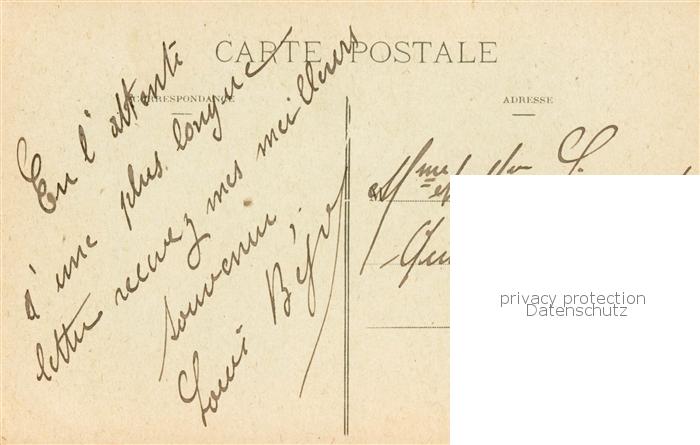 CARTE POSTALE
CORRESPONDANCE
ADRESSE
En l'attente
d'une plus longue
lettre recevez mes meilleurs
souvenirs
Louis
Mme et
privacy protection
Datenschutz